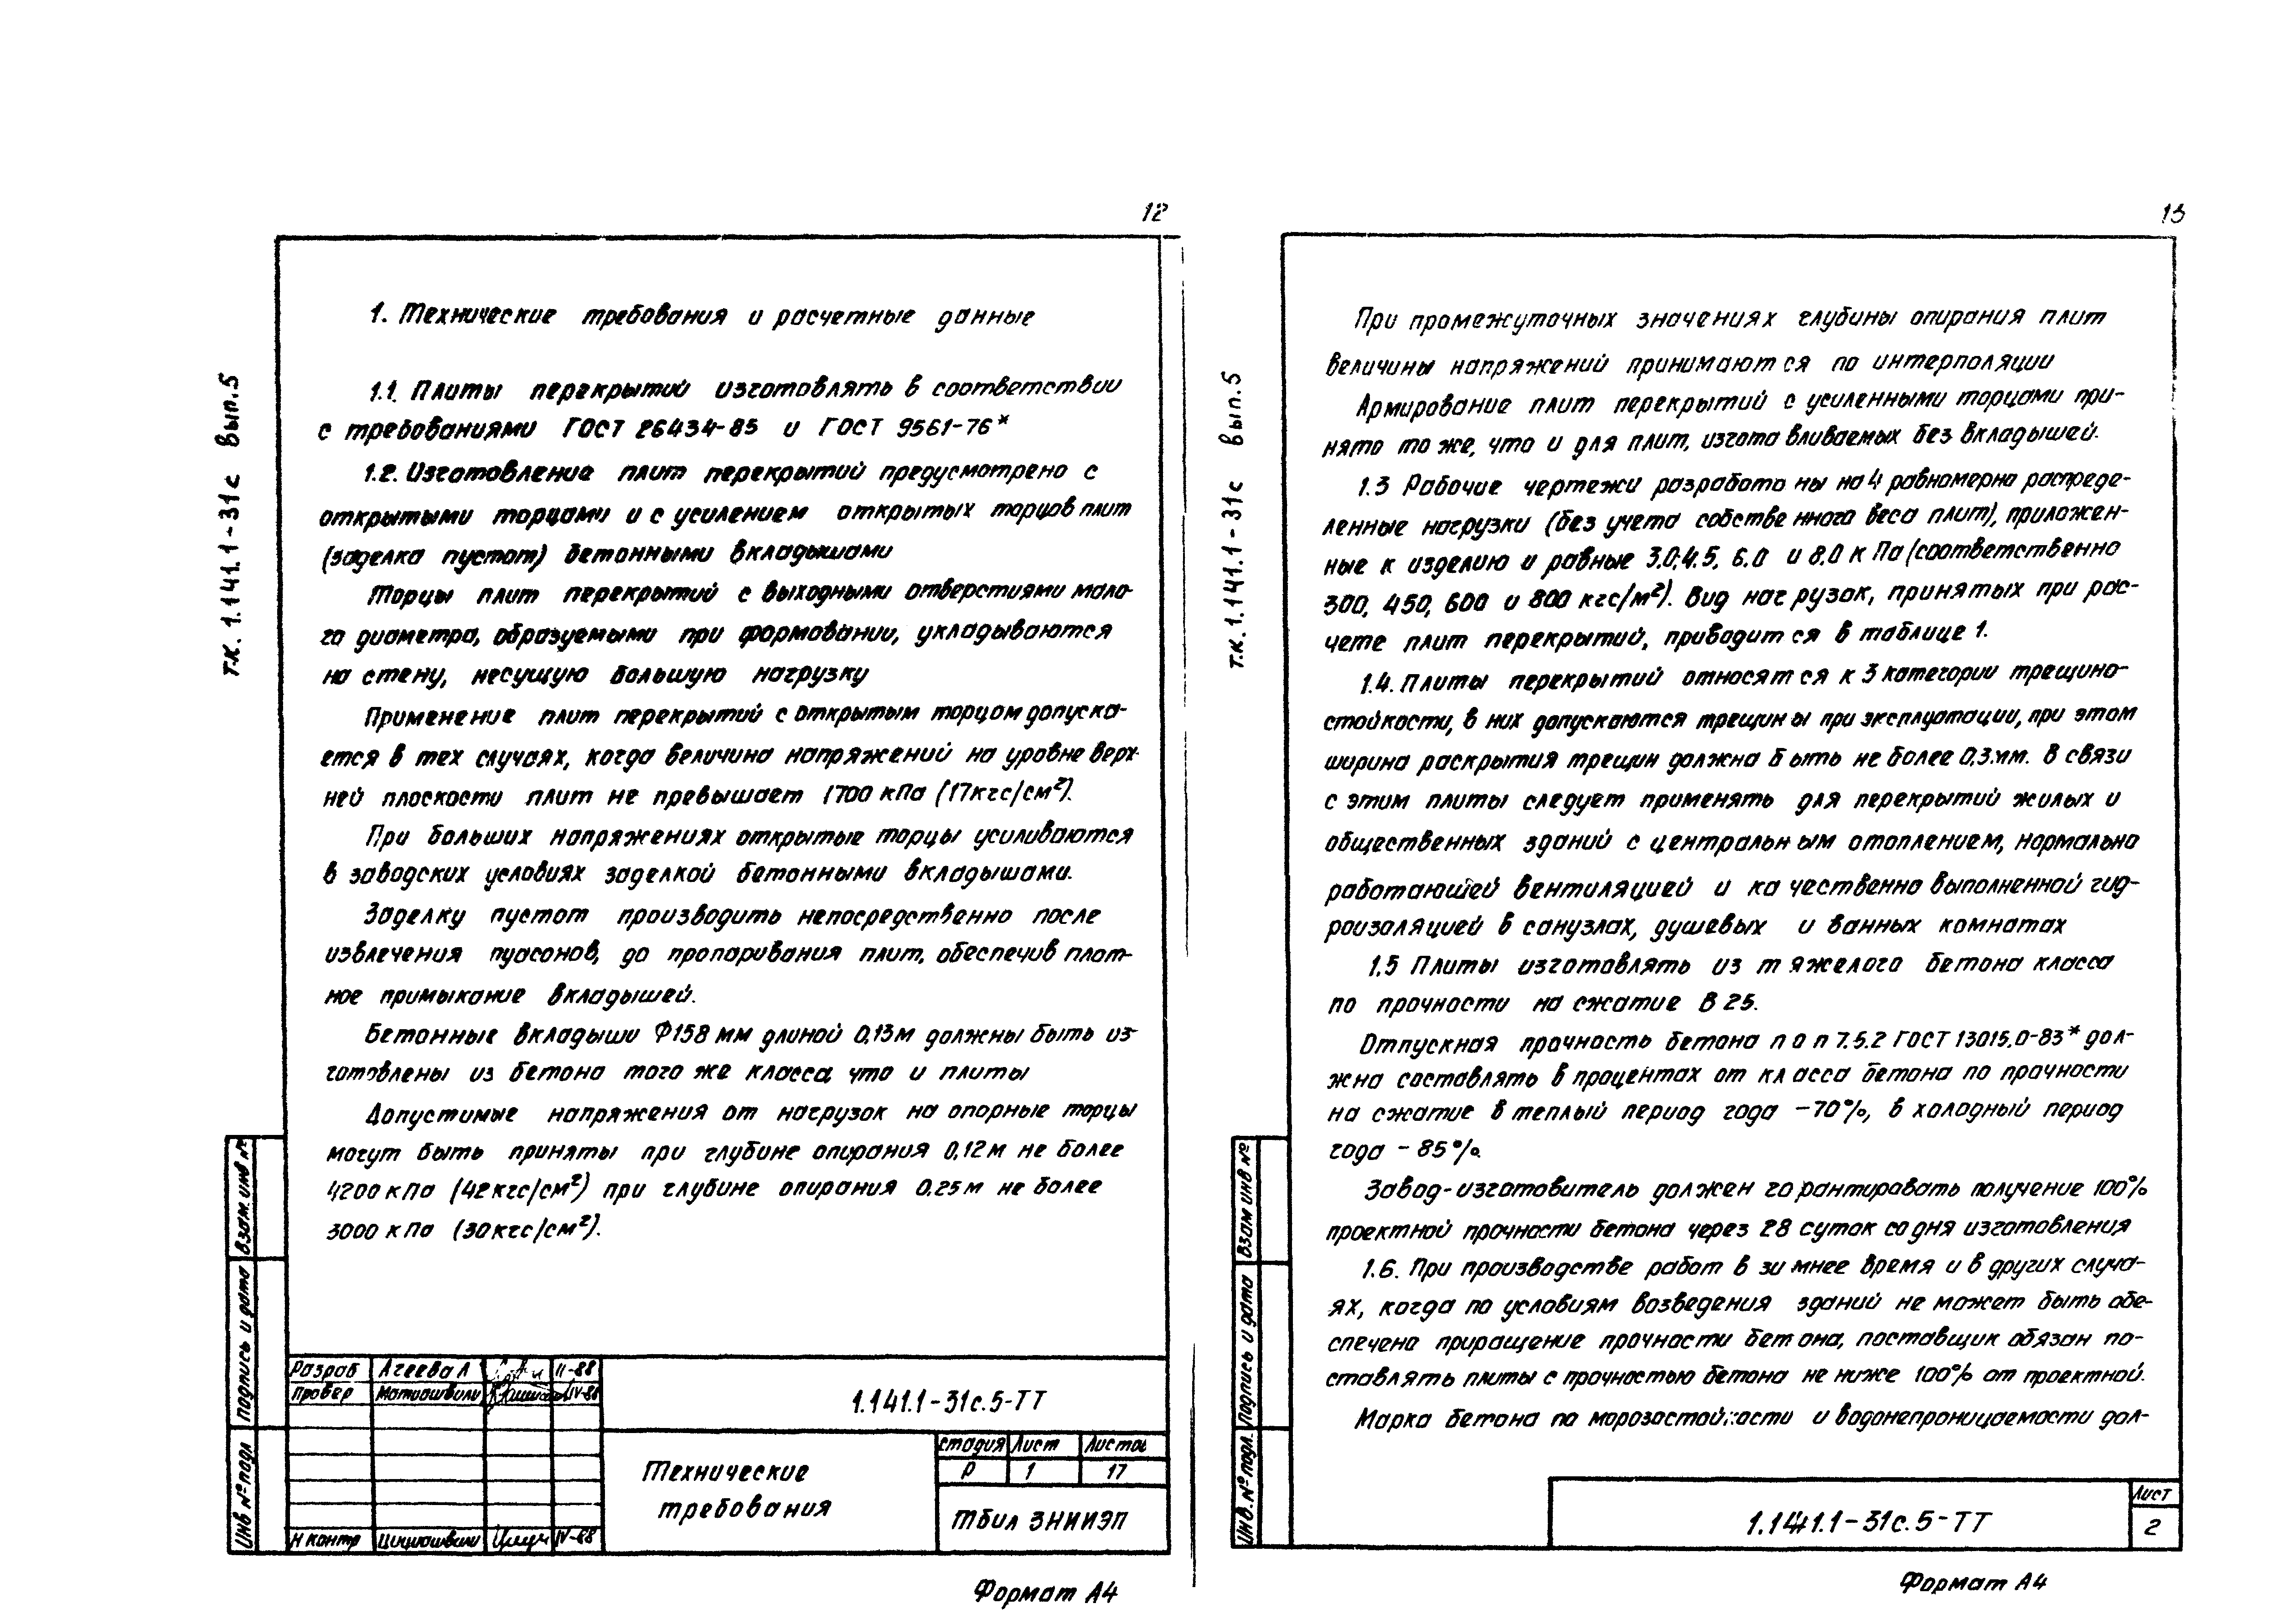 12
Т.К. 1.141.1-31с Вып.5
1. Технические требования и расчетные данные
1.1. Плиты перекрытий изготовлять в соответствии
с требованиями ГОСТ 26434-85 и ГОСТ 9561-76*
1.2. Изготовление плит перекрытий предусмотрено с
открытыми торцами и с усилением открытых торцов плит
(заделка пустот) бетонными вкладышами
Торцы плит перекрытий с выходными отверстиями мало-
го диаметра, образуемыми при формовании, укладываются
на стену, несущую большую нагрузку
Применение плит перекрытий с открытым торцом допуска-
ется в тех случаях, когда величина напряжений на уровне верх-
ней плоскости плит не превышает 1700 кПа (17кгс/см²).
При больших напряжениях открытые торцы усиливаются
в заводских условиях заделкой бетонными вкладышами.
Заделку пустот производить непосредственно после
извлечения пуасонов, до пропаривания плит, обеспечив плот-
ное примыкание вкладышей.
Бетонные вкладыши Ф158 мм длиной 0,13м должны быть из-
готовлены из бетона того же класса, что и плиты
Допустимые напряжения от нагрузок на опорные торцы
могут быть приняты при глубине опирания 0,12м не более
4200 кПа (42кгс/см²) при глубине опирания 0.25м не более
3000 кПа (30кгс/см²).
Взам. инв №
Подпись и дата
Инв № подл
Разраб Агеева Л II-88
Провер Матиашвили IV-88
Н контр Цициашвили IV-88
1.141.1-31с.5-ТТ
Технические
требования
стадия Лист Листов
Р 1 17
ТбилЗНИИЭП
Формат А4
13
Т.К. 1.141.1-31с Вып.5
При промежуточных значениях глубины опирания плит
величины напряжений принимаются по интерполяции
Армирование плит перекрытий с усиленными торцами при-
нято то же, что и для плит, изготавливаемых без вкладышей.
1.3 Рабочие чертежи разработаны на 4 равномерно распреде-
ленные нагрузки (без учета собственного веса плит), приложен-
ные к изделию и равные 3.0;4.5, 6.0 и 8.0 кПа (соответственно
300, 450, 600 и 800 кгс/м²). Вид нагрузок, принятых при рас-
чете плит перекрытий, приводится в таблице 1.
1.4. Плиты перекрытий относятся к 3 категории трещино-
стойкости, в них допускаются трещины при эксплуатации, при этом
ширина раскрытия трещин должна быть не более 0,3мм. В связи
с этим плиты следует применять для перекрытий жилых и
общественных зданий с центральным отоплением, нормально
работающей вентиляцией и качественно выполненной гид-
роизоляцией в санузлах, душевых и ванных комнатах
1.5 Плиты изготовлять из тяжелого бетона класса
по прочности на сжатие В 25.
Отпускная прочность бетона по п 7.5.2 ГОСТ 13015.0-83* дол-
жна составлять в процентах от класса бетона по прочности
на сжатие в теплый период года -70%, в холодный период
года - 85%.
Завод-изготовитель должен гарантировать получение 100%
проектной прочности бетона через 28 суток со дня изготовления
1.6. При производстве работ в зимнее время и в других случа-
ях, когда по условиям возведения зданий не может быть обе-
спечено приращение прочности бетона, поставщик обязан по-
ставлять плиты с прочностью бетона не ниже 100% от проектной.
Марка бетона по морозостойкости и водонепроницаемости дол-
Взам инв №
Подпись и дата
Инв. № подл.
1.141.1-31с.5-ТТ
Лист
2
Формат А4